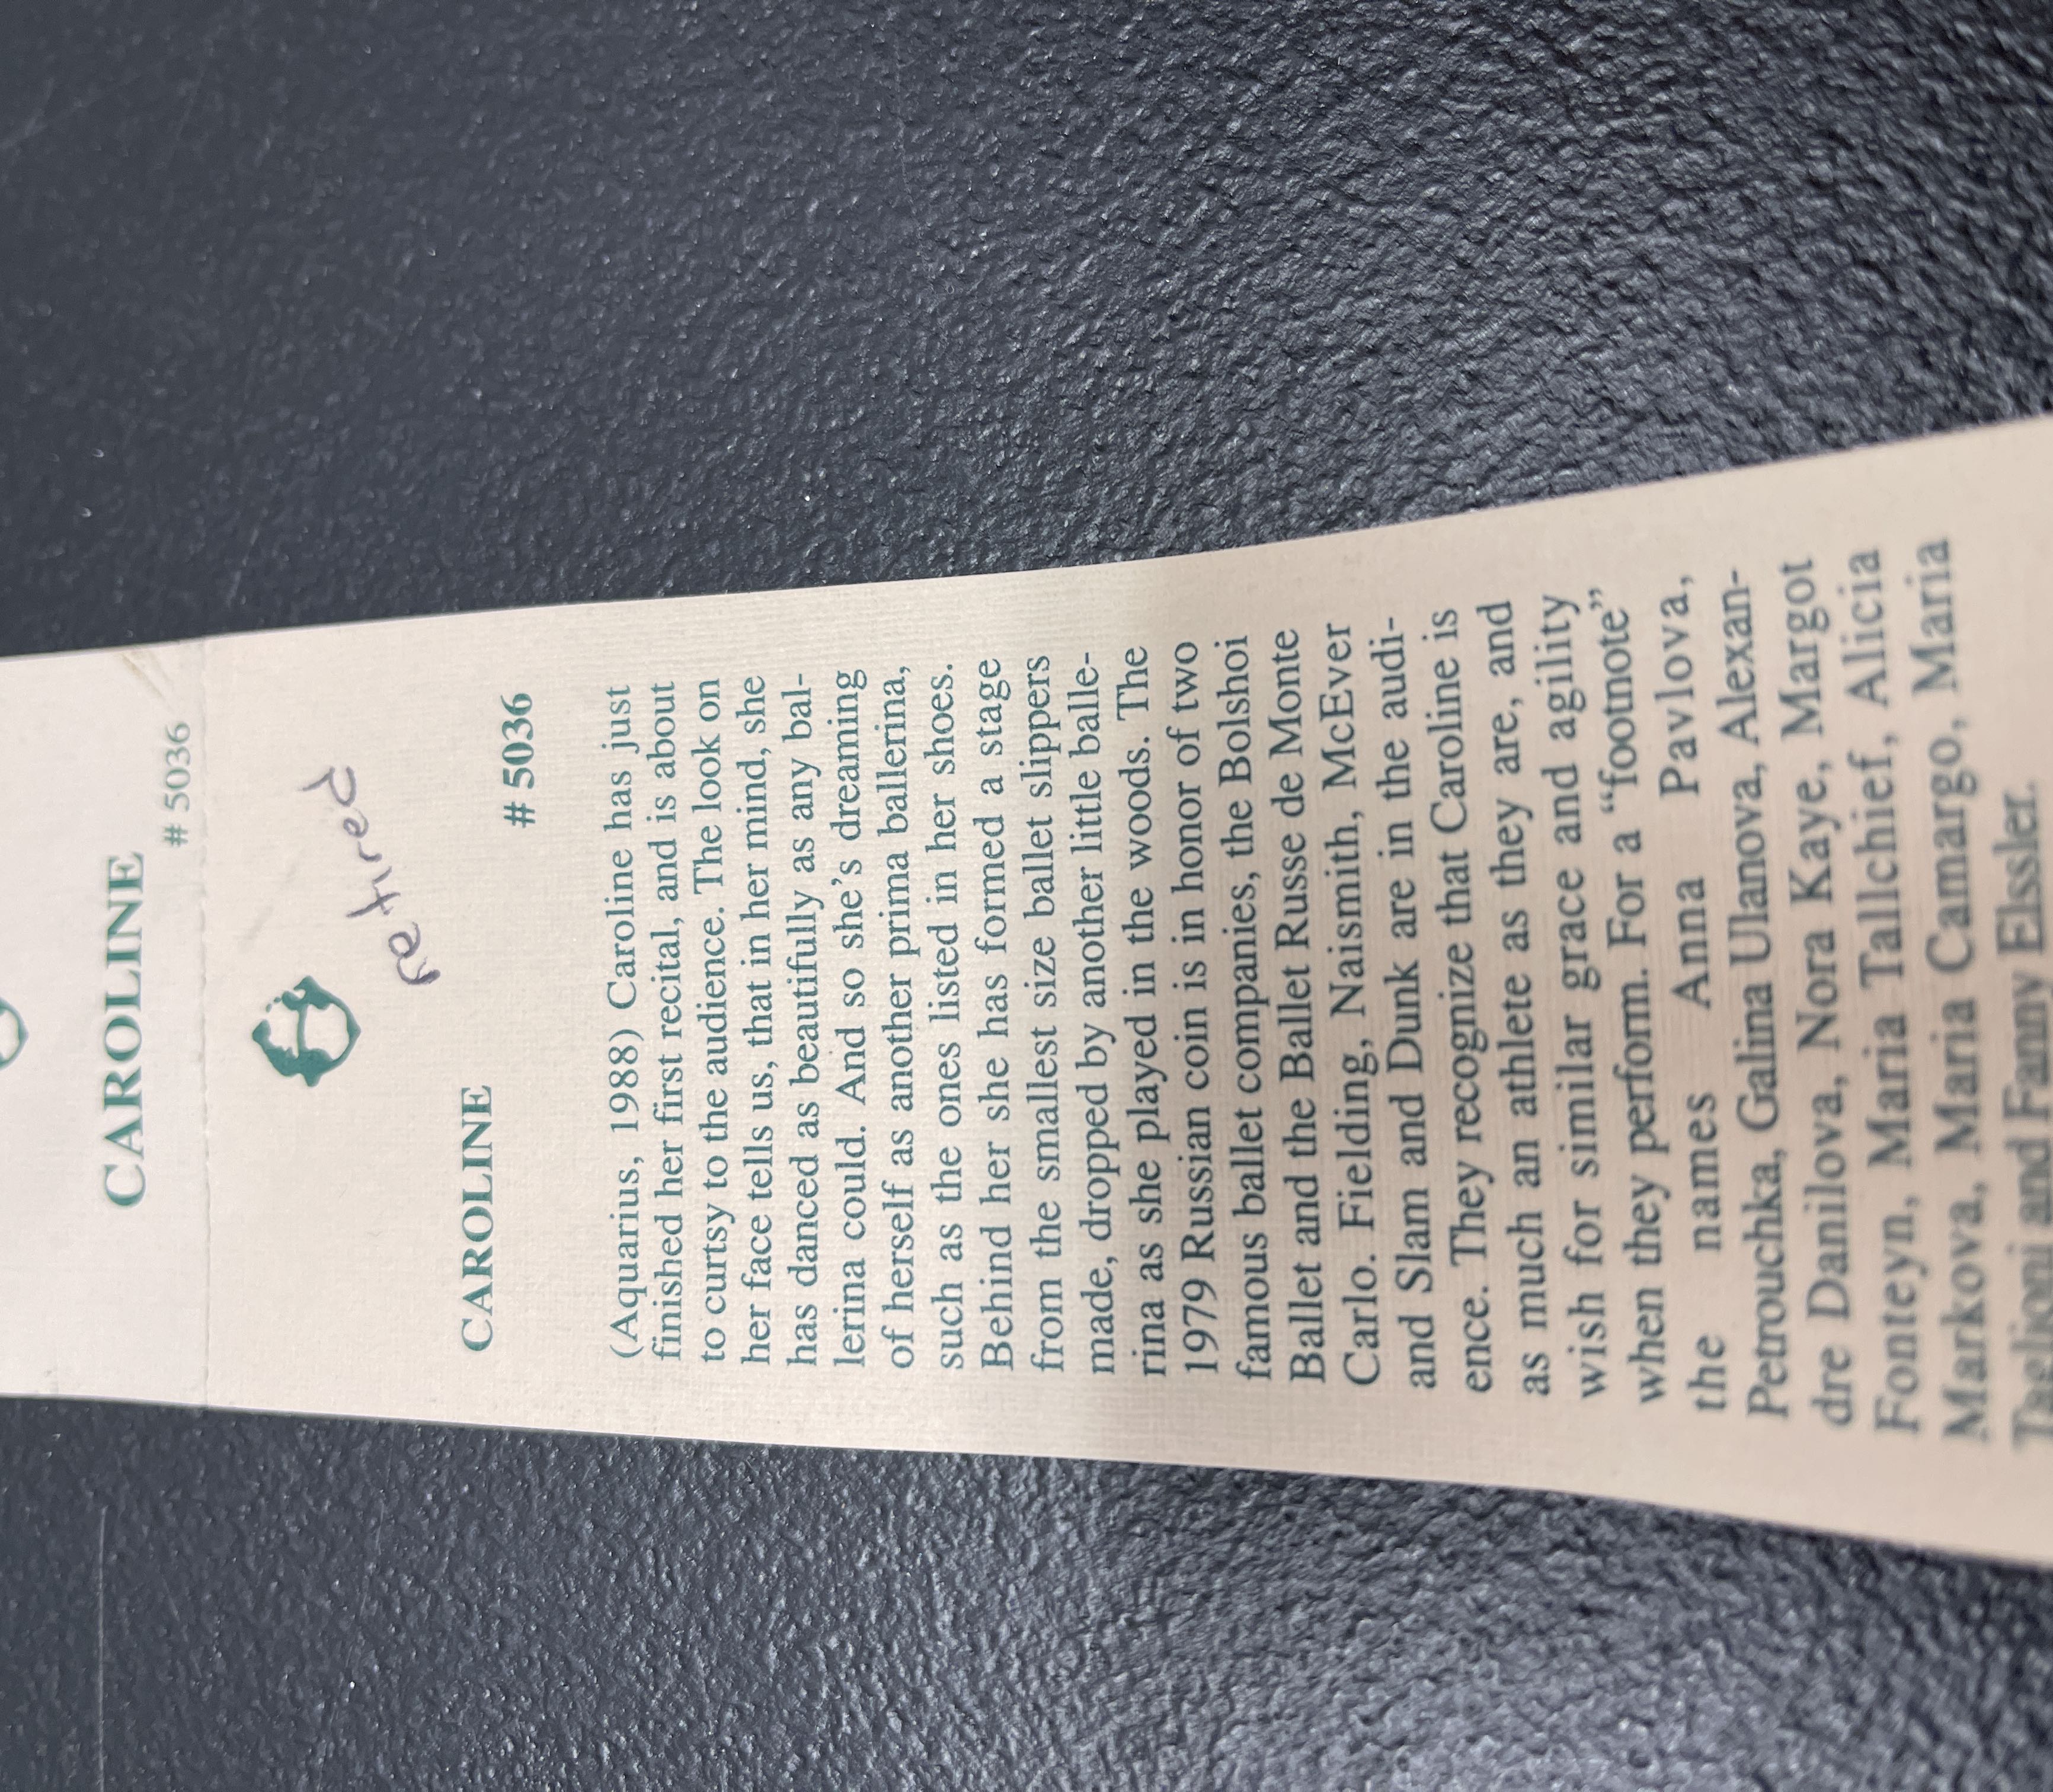 CAROLINE
# 5036
retired
CAROLINE
# 5036
(Aquarius, 1988) Caroline has just
finished her first recital, and is about
to curtsy to the audience. The look on
her face tells us, that in her mind, she
has danced as beautifully as any bal-
lerina could. And so she's dreaming
of herself as another prima ballerina,
such as the ones listed in her shoes.
Behind her she has formed a stage
from the smallest size ballet slippers
made, dropped by another little balle-
rina as she played in the woods. The
1979 Russian coin is in honor of two
famous ballet companies, the Bolshoi
Ballet and the Ballet Russe de Monte
Carlo. Fielding, Naismith, McEver
and Slam and Dunk are in the audi-
ence. They recognize that Caroline is
as much an athlete as they are, and
wish for similar grace and agility
when they perform. For a “footnote”
the names Anna Pavlova,
Petrouchka, Galina Ulanova, Alexan-
dre Danilova, Nora Kaye, Margot
Fonteyn, Maria Tallchief, Alicia
Markova, Maria Camargo, Maria
Taglioni and Fanny Elssler.